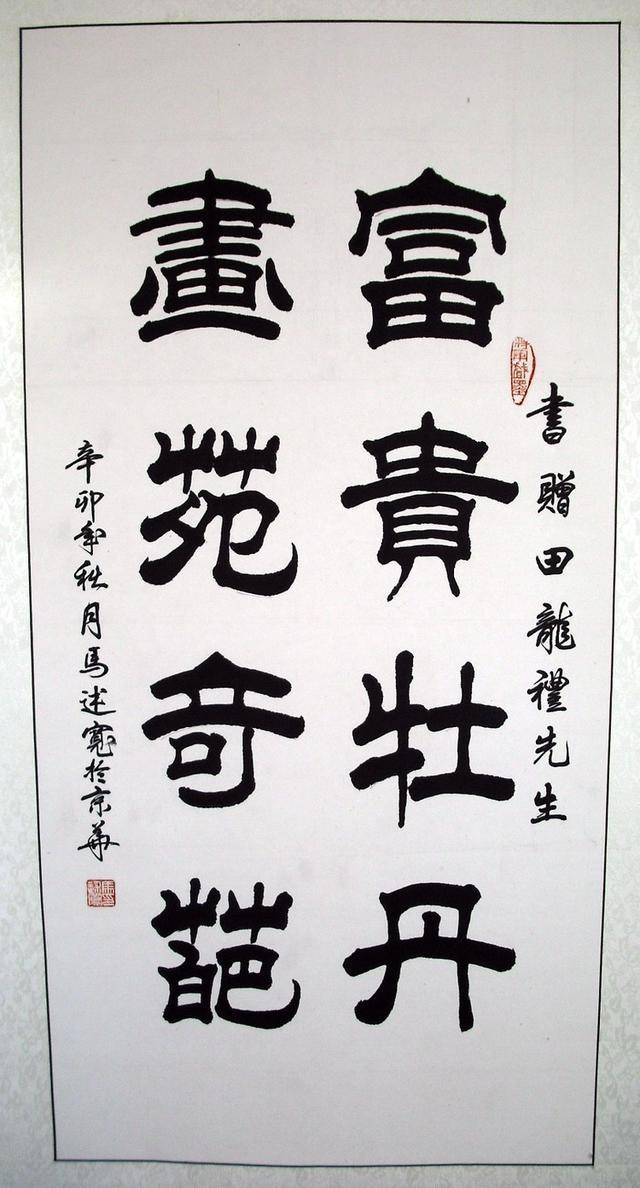 書贈田龍禮先生
富貴牡丹
畫苑奇葩
辛卯年秋月馬述寬於京華